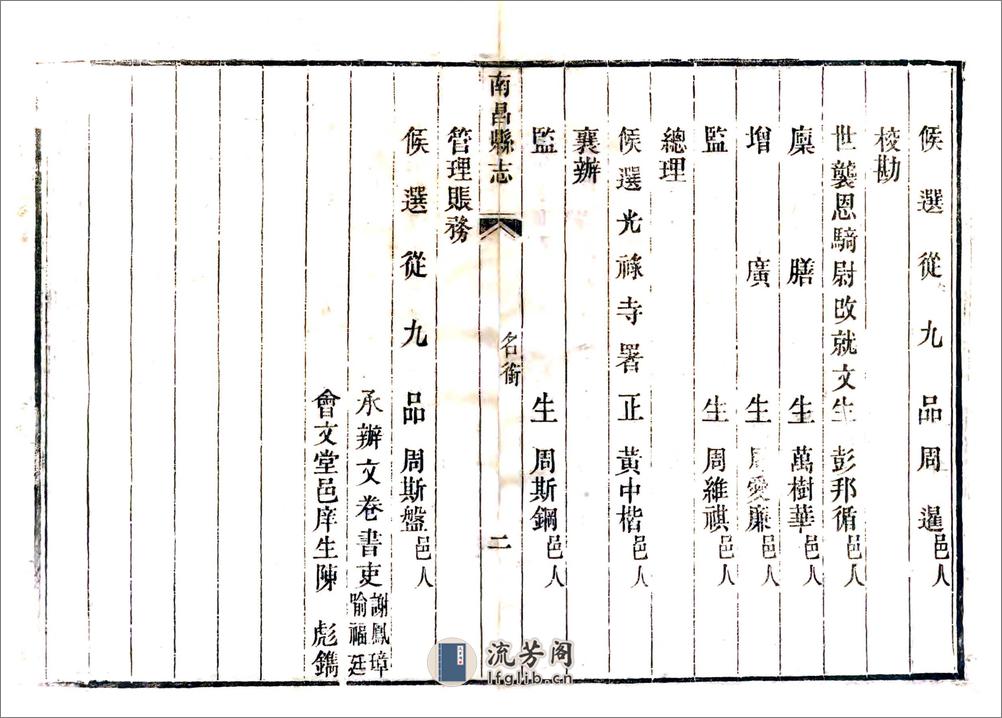 候選從九品周暹邑人
校勘
世襲恩騎尉改就文生彭邦循邑人
廩膳生萬樹華邑人
增廣生周愛廉邑人
監生周維祺邑人
總理
候選光祿寺署正黃中楷邑人
襄辦
監生周斯鋼邑人
南昌縣志
名銜
二
管理賬務
候選從九品周斯盤邑人
承辦文卷書吏謝鳳璋喻福廷
會文堂邑庠生陳彪鐫
流芳阁
lfglib.cn